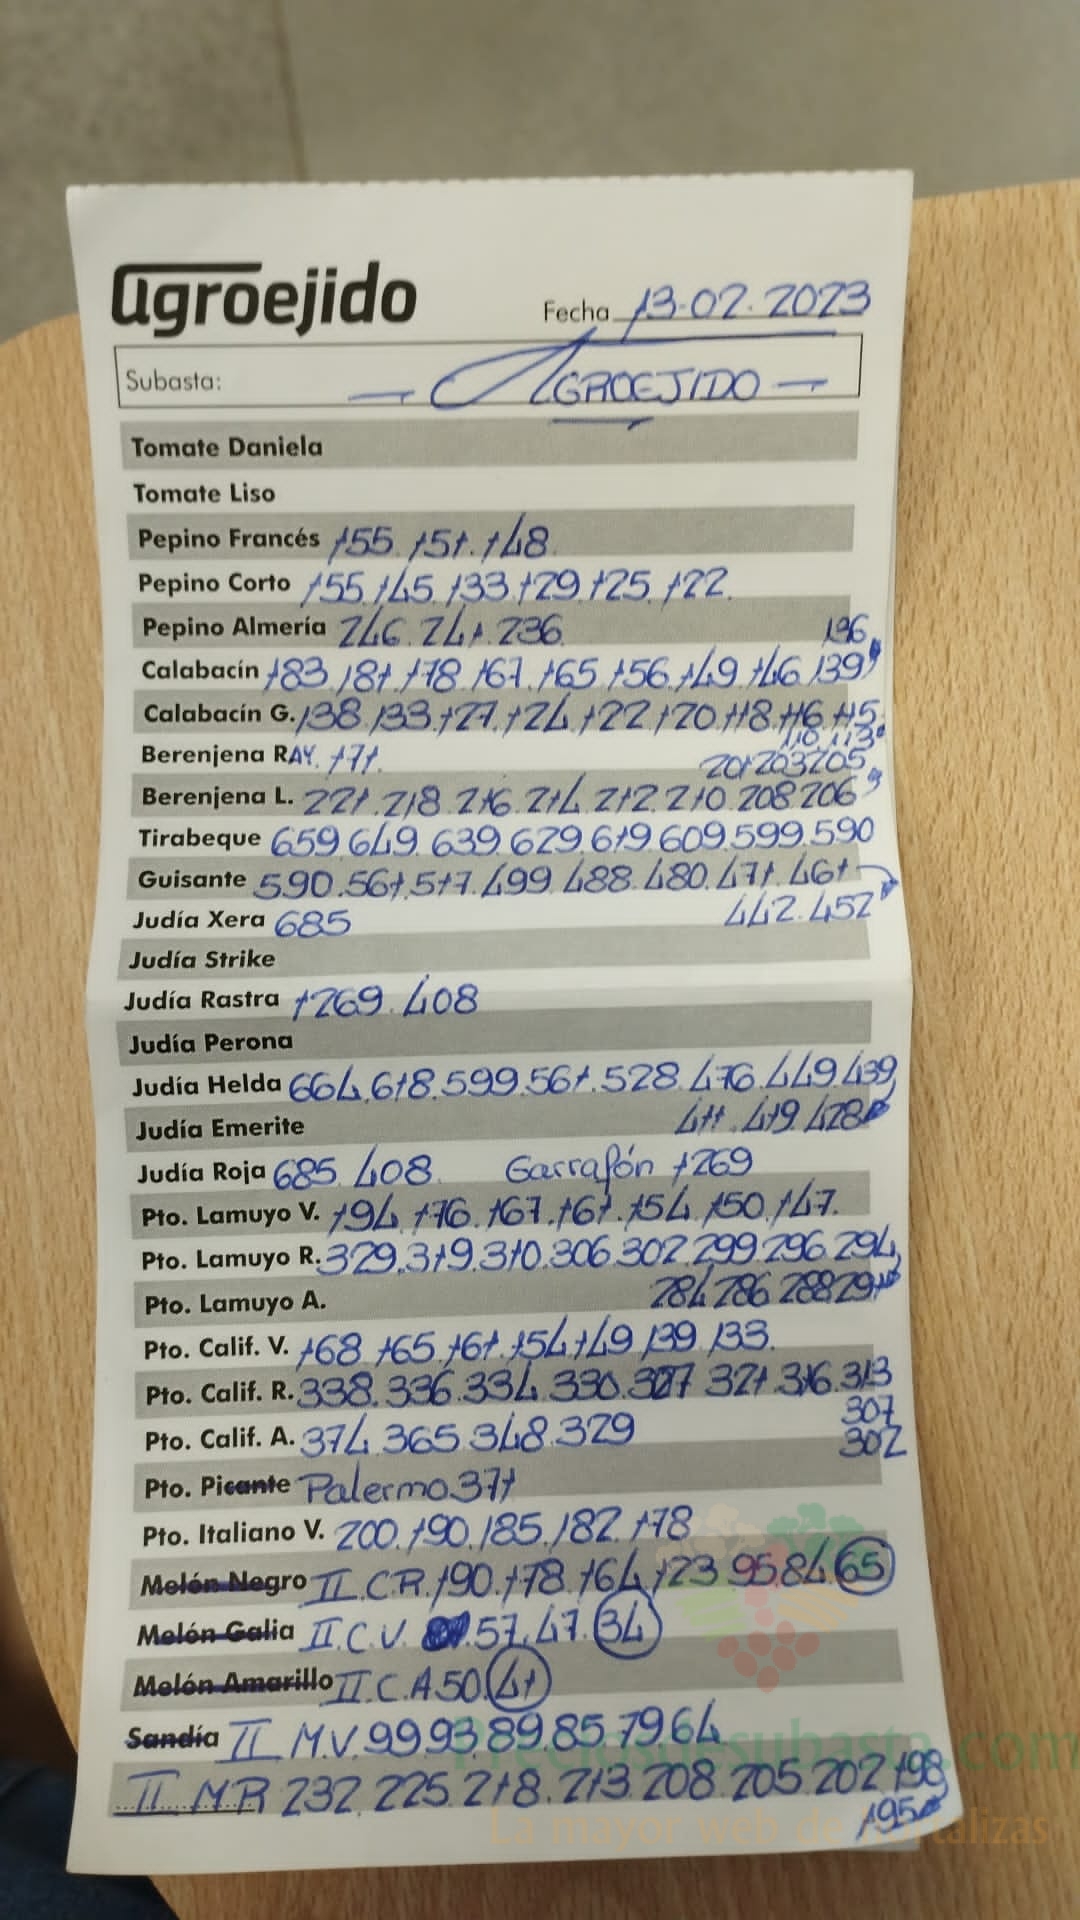 agroejido
Fecha 13-02-2023
Subasta: — AGROEJIDO —
Tomate Daniela
Tomate Liso
Pepino Francés 155. 151. 148
Pepino Corto 155. 145. 133. 129. 125. 122.
Pepino Almería 246. 241. 236. 136.
Calabacín 183. 181. 178. 167. 165. 156. 149. 146. 139
Calabacín G. 138. 133. 127. 124. 122. 120. 118. 116. 115.
110. 113
Berenjena RAY. 171. 201 203 205
Berenjena L. 221. 218. 216. 214. 212. 210. 208 206
Tirabeque 659. 649. 639. 629. 619. 609. 599. 590
Guisante 590. 561. 517. 499. 488. 480. 471. 461
Judía Xera 685 442. 452
Judía Strike
Judía Rastra 1269. 408
Judía Perona
Judía Helda 664. 618. 599. 561. 528. 476. 449. 439
Judía Emerite 411. 419. 428
Judía Roja 685. 408. Garrafón 1269
Pto. Lamuyo V. 194. 176. 167. 161. 154. 150. 147.
Pto. Lamuyo R. 329. 319. 310. 306. 302. 299. 296. 294
Pto. Lamuyo A. 284 286 288 291
Pto. Calif. V. 168. 165. 161. 154. 149. 139. 133.
Pto. Calif. R. 338. 336. 334. 330. 327 321. 316. 313
307
Pto. Calif. A. 374. 365. 348. 329 302
Pto. Picante Palermo 371
Pto. Italiano V. 200. 190. 185. 182. 178
Melón Negro II C.R. 190. 178. 164. 123 95 84 65
Melón Galia II C.V. 57. 47. 34
Melón Amarillo II C.A 50. 41
Sandía II M.V. 99 93. 89. 85. 79 64
II MR 232. 225. 218. 213. 208. 205. 202 198
195
Preciosdesubasta.com
La mayor web de hortalizas